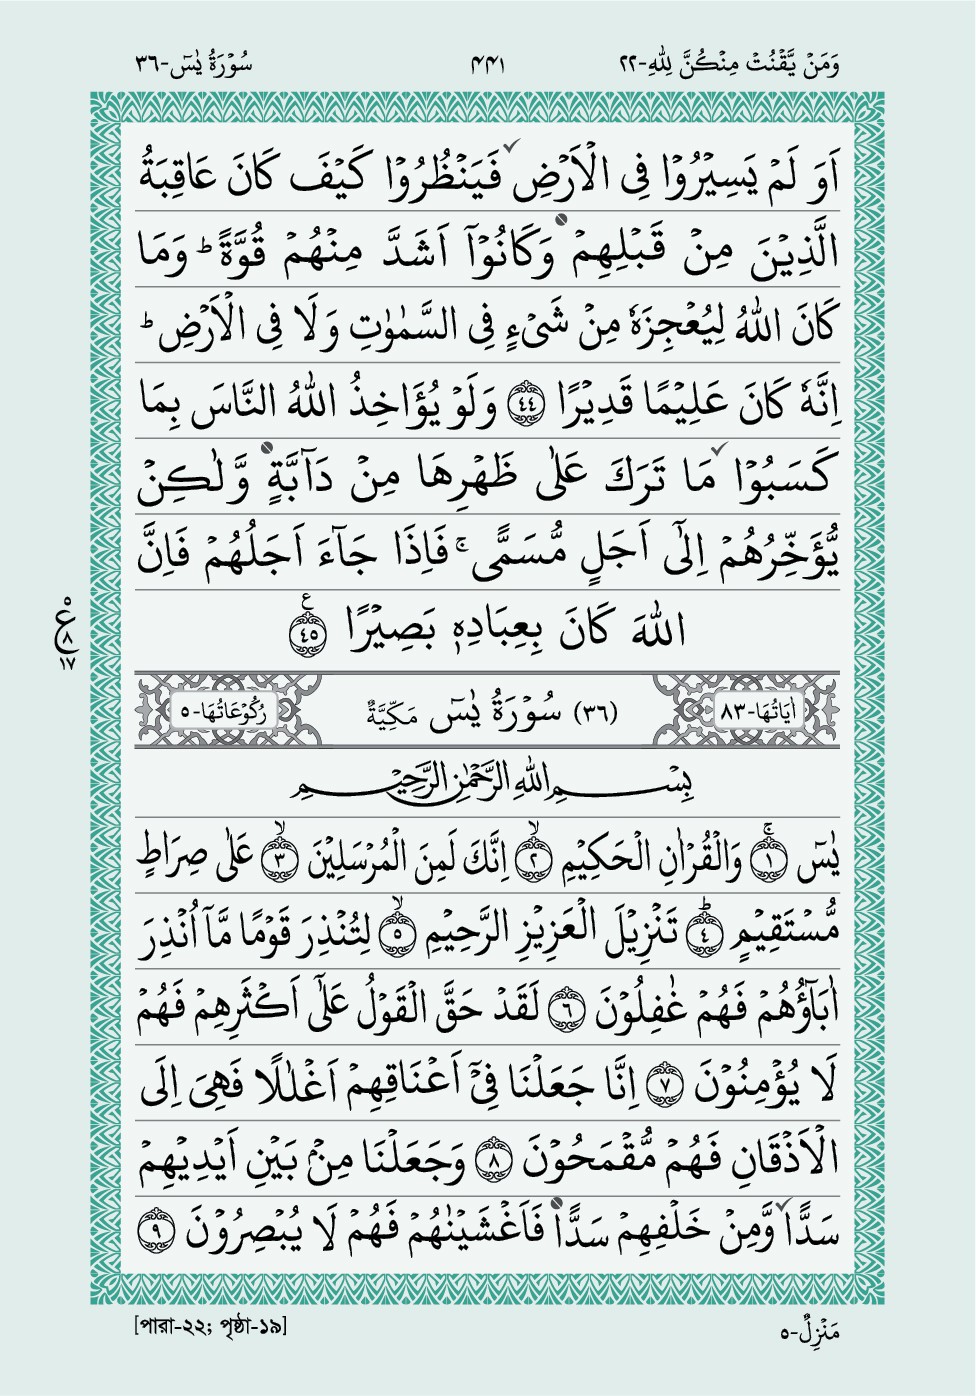 وَمَنۡ يَّقۡنُتۡ مِنۡكُنَّ لِلّٰهِ-٢٢ ۴۴۱ سُوۡرَةُ يٰسٓ-٣٦
اَوَ لَمۡ يَسِيۡرُوۡا فِى الۡاَرۡضِ فَيَنۡظُرُوۡا كَيۡفَ كَانَ عَاقِبَةُ
الَّذِيۡنَ مِنۡ قَبۡلِهِمۡ وَكَانُوۡۤا اَشَدَّ مِنۡهُمۡ قُوَّةً ؕ وَمَا
كَانَ اللّٰهُ لِيُعۡجِزَهٗ مِنۡ شَىۡءٍ فِى السَّمٰوٰتِ وَلَا فِى الۡاَرۡضِ ؕ
اِنَّهٗ كَانَ عَلِيۡمًا قَدِيۡرًا ﴿٤٤﴾ وَلَوۡ يُؤَاخِذُ اللّٰهُ النَّاسَ بِمَا
كَسَبُوۡا مَا تَرَكَ عَلٰى ظَهۡرِهَا مِنۡ دَآبَّةٍ وَّلٰـكِنۡ
يُّؤَخِّرُهُمۡ اِلٰٓى اَجَلٍ مُّسَمًّى ۚ فَاِذَا جَآءَ اَجَلُهُمۡ فَاِنَّ
اللّٰهَ كَانَ بِعِبَادِهٖ بَصِيۡرًا ﴿٤٥﴾ ع
٥ ع ٨ ١٧
اٰيَاتُهَا-٨٣ (٣٦) سُوۡرَةُ يٰسٓ مَكِّيَّةٌ رُكُوۡعَاتُهَا-٥
بِسۡمِ اللّٰهِ الرَّحۡمٰنِ الرَّحِيۡمِ
يٰسٓ ۚ ﴿١﴾ وَالۡقُرۡاٰنِ الۡحَكِيۡمِ ۙ ﴿٢﴾ اِنَّكَ لَمِنَ الۡمُرۡسَلِيۡنَ ۙ ﴿٣﴾ عَلٰى صِرَاطٍ
مُّسۡتَقِيۡمٍ ؕ ﴿٤﴾ تَنۡزِيۡلَ الۡعَزِيۡزِ الرَّحِيۡمِ ۙ ﴿٥﴾ لِتُنۡذِرَ قَوۡمًا مَّاۤ اُنۡذِرَ
اٰبَآؤُهُمۡ فَهُمۡ غٰفِلُوۡنَ ﴿٦﴾ لَقَدۡ حَقَّ الۡقَوۡلُ عَلٰٓى اَكۡثَرِهِمۡ فَهُمۡ
لَا يُؤۡمِنُوۡنَ ﴿٧﴾ اِنَّا جَعَلۡنَا فِىۡۤ اَعۡنَاقِهِمۡ اَغۡلٰلًا فَهِىَ اِلَى
الۡاَذۡقَانِ فَهُمۡ مُّقۡمَحُوۡنَ ﴿٨﴾ وَجَعَلۡنَا مِنۡۢ بَيۡنِ اَيۡدِيۡهِمۡ
سَدًّا وَّمِنۡ خَلۡفِهِمۡ سَدًّا فَاَغۡشَيۡنٰهُمۡ فَهُمۡ لَا يُبۡصِرُوۡنَ ﴿٩﴾
مَنۡزِلٌ-٥ [পারা-২২; পৃষ্ঠা-১৯]